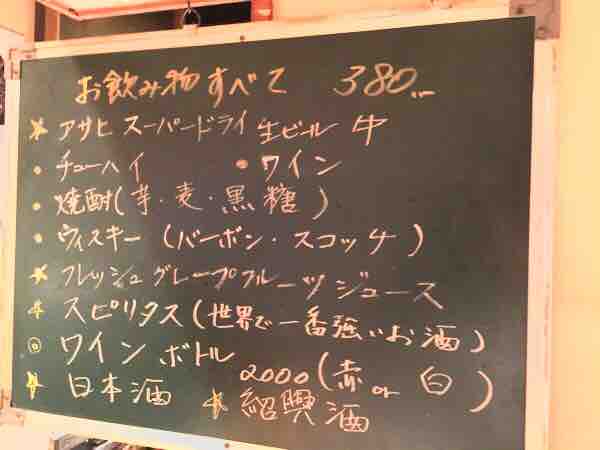 お飲み物すべて 380
★ アサヒ スーパードライ 生ビール 中
• チューハイ • ワイン
• 焼酎(芋・麦・黒糖)
• ウィスキー (バーボン・スコッチ)
★ フレッシュグレープフルーツジュース
★ スピリタス(世界で一番強いお酒)
◎ ワインボトル
2000(赤 or 白)
★ 日本酒 ★ 紹興酒